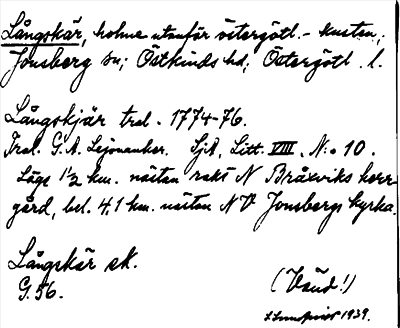 Långskär, holme utanför östergötl.-kusten,
Jonsberg sn; Östkinds hd, Östergötl. l.
Långskjär trol. 1774-76.
Trol. G.A. Lejonanker. SjA, Litt. VIII, N:o 10.
Läge 1½ km. nästan rakt N Bråxviks herr-
gård, bel. 4,1 km. nästan NV Jonsbergs kyrka.
Långskär ek.
G. 56.
(Vänd!)
1939.